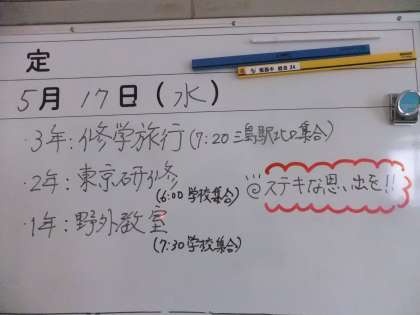 定
5月17日(水)
・3年:修学旅行(7:20 三島駅北口集合)
・2年:東京研修
(6:00 学校集合)
@ステキな思い出を!!
・1年:野外教室
(7:30 学校集合)